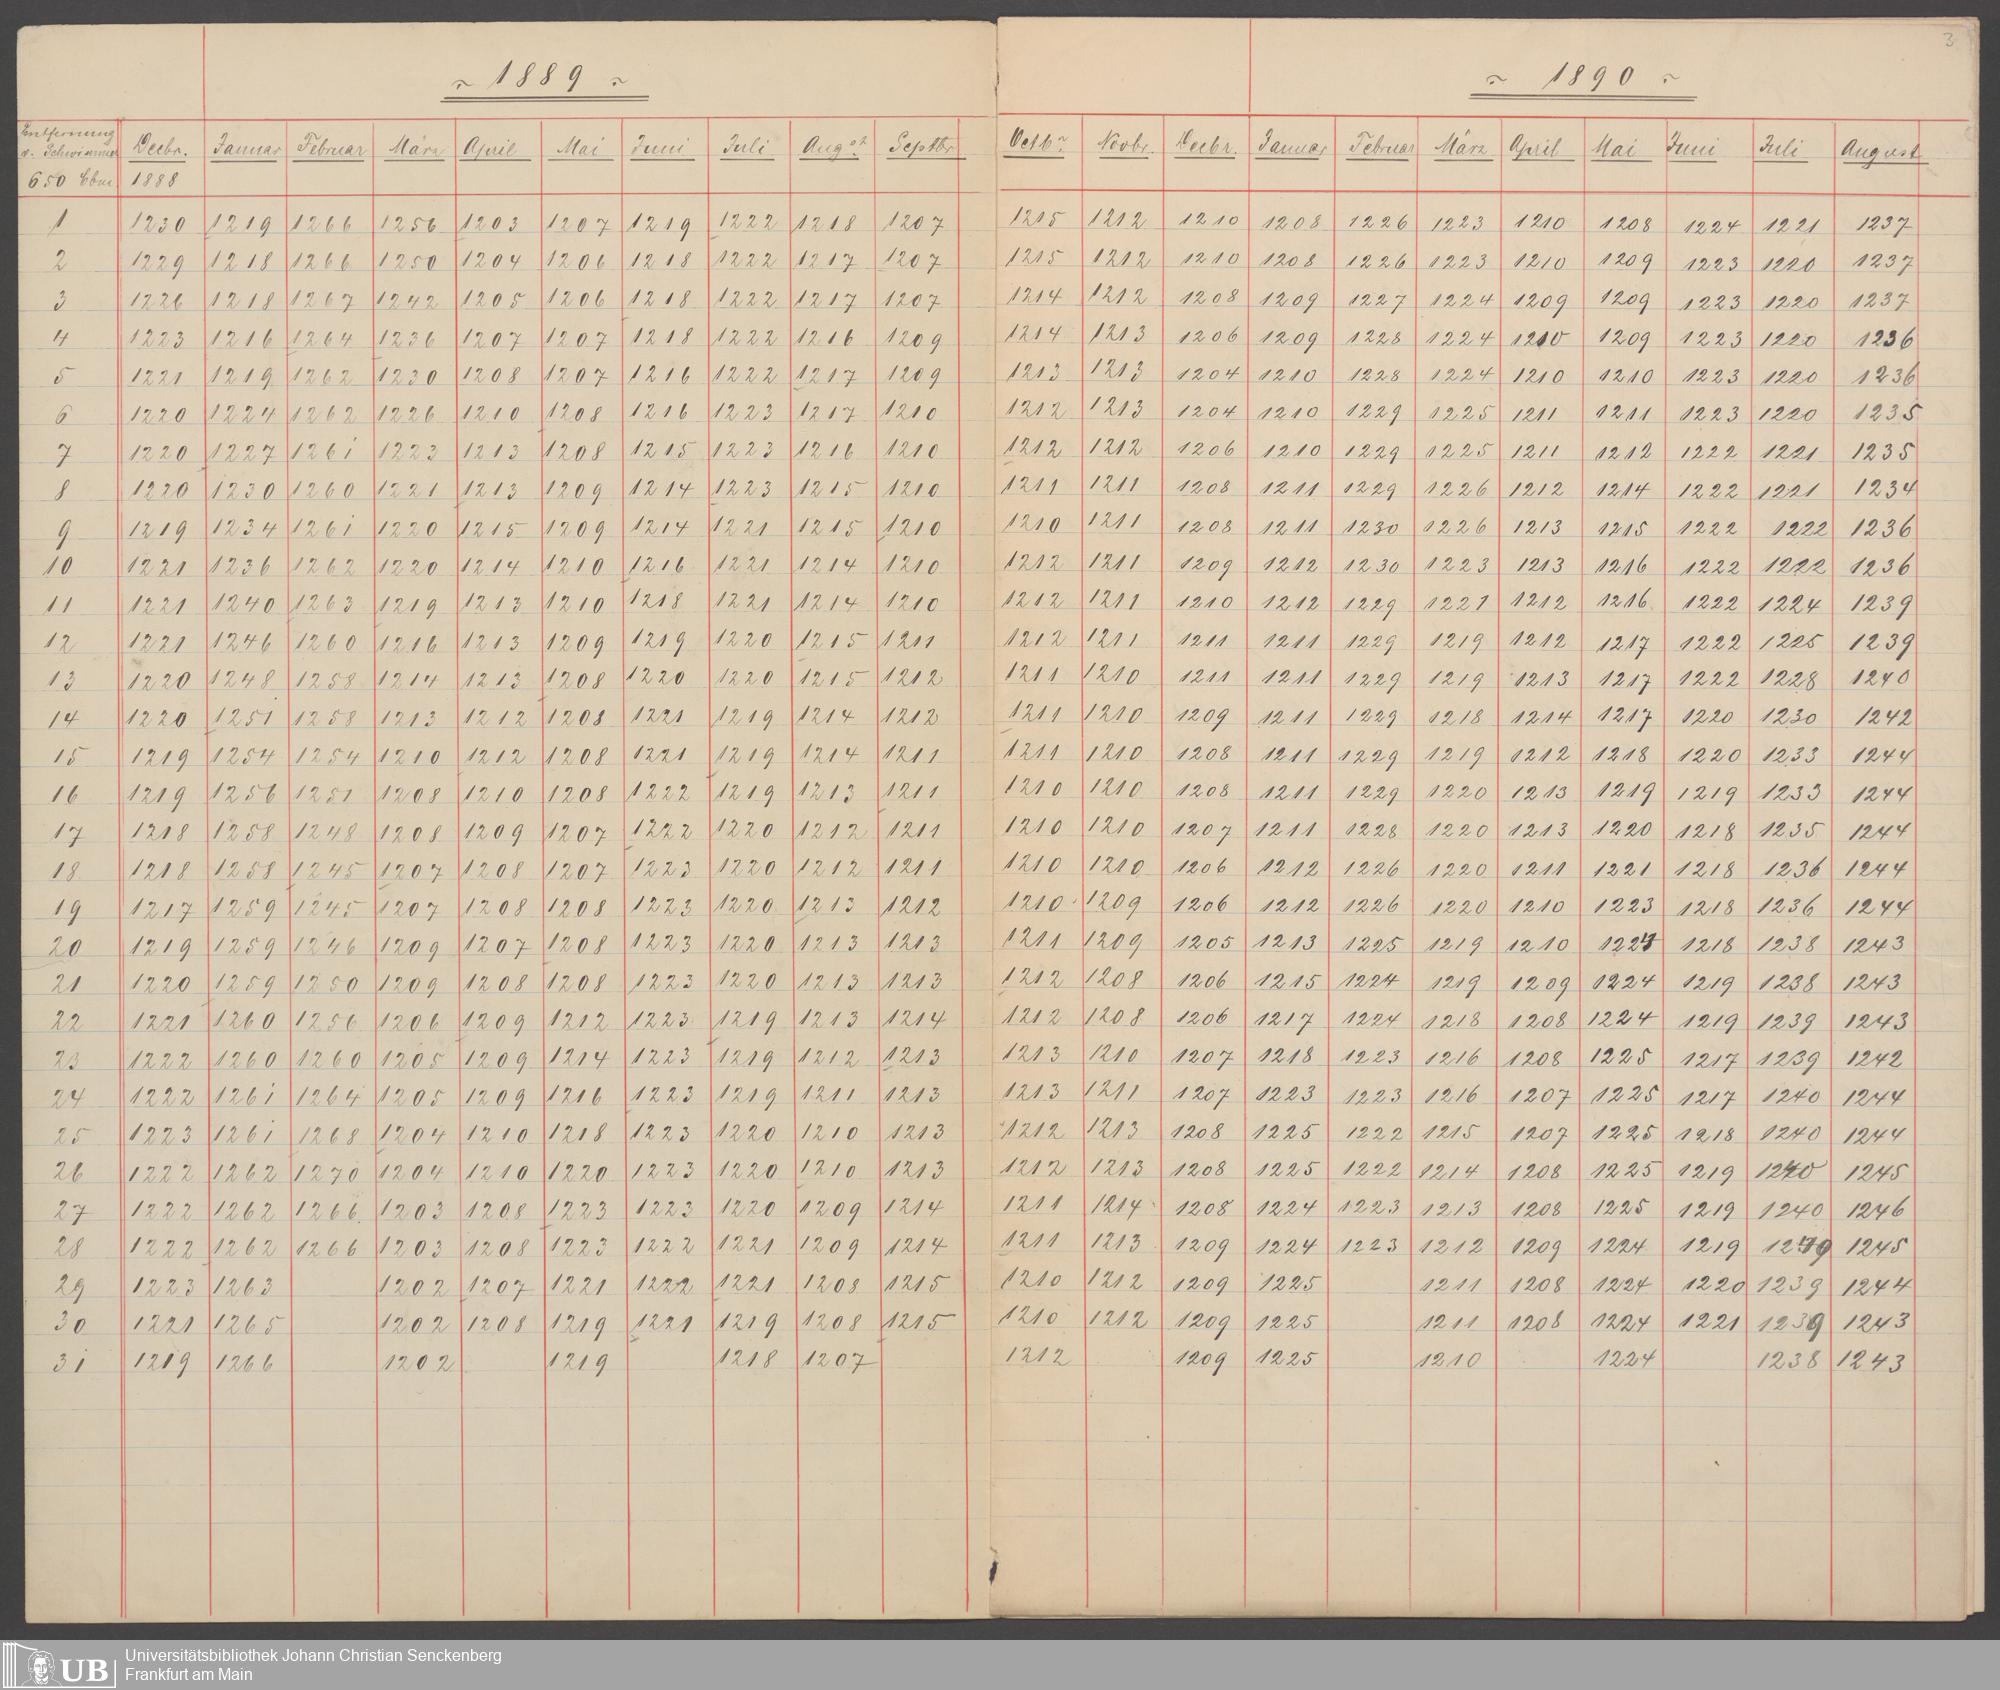 3
~ 1889 ~ ~ 1890 ~
Entfernung
v. Schwimmer Decbr. Januar Februar März April Mai Juni Juli Augst Septbr Octbr Novbr. Decbr. Januar Februar März April Mai Juni Juli August
650 Cbm. 1888
1 1230 1219 1266 1256 1203 1207 1219 1222 1218 1207 1215 1212 1210 1208 1226 1223 1210 1208 1224 1221 1237
2 1229 1218 1266 1250 1204 1206 1218 1222 1217 1207 1215 1212 1210 1208 1226 1223 1210 1209 1223 1220 1237
3 1226 1218 1267 1242 1205 1206 1218 1222 1217 1207 1214 1212 1208 1209 1227 1224 1209 1209 1223 1220 1237
4 1223 1216 1264 1236 1207 1207 1218 1222 1216 1209 1214 1213 1206 1209 1228 1224 1210 1209 1223 1220 1236
5 1221 1219 1262 1230 1208 1207 1216 1222 1217 1209 1213 1213 1204 1210 1228 1224 1210 1210 1223 1220 1236
6 1220 1224 1262 1226 1210 1208 1216 1223 1217 1210 1212 1213 1204 1210 1229 1225 1211 1211 1223 1220 1235
7 1220 1227 1261 1223 1213 1208 1215 1223 1216 1210 1212 1212 1206 1210 1229 1225 1211 1212 1222 1221 1235
8 1220 1230 1260 1221 1213 1209 1214 1223 1215 1210 1211 1211 1208 1211 1229 1226 1212 1214 1222 1221 1234
9 1219 1234 1261 1220 1215 1209 1214 1221 1215 1210 1210 1211 1208 1211 1230 1226 1213 1215 1222 1222 1236
10 1221 1236 1262 1220 1214 1210 1216 1221 1214 1210 1212 1211 1209 1212 1230 1223 1213 1216 1222 1222 1236
11 1221 1240 1263 1219 1213 1210 1218 1221 1214 1210 1212 1211 1210 1212 1229 1221 1212 1216 1222 1224 1239
12 1221 1246 1260 1216 1213 1209 1219 1220 1215 1211 1212 1211 1211 1211 1229 1219 1212 1217 1222 1225 1239
13 1220 1248 1258 1214 1213 1208 1220 1220 1215 1212 1211 1210 1211 1211 1229 1219 1213 1217 1222 1228 1240
14 1220 1251 1258 1213 1212 1208 1221 1219 1214 1212 1211 1210 1209 1211 1229 1218 1214 1217 1220 1230 1242
15 1219 1254 1254 1210 1212 1208 1221 1219 1214 1211 1211 1210 1208 1211 1229 1219 1212 1218 1220 1233 1244
16 1219 1256 1251 1208 1210 1208 1222 1219 1213 1211 1210 1210 1208 1211 1229 1220 1213 1219 1219 1233 1244
17 1218 1258 1248 1208 1209 1207 1222 1220 1212 1211 1210 1210 1207 1211 1228 1220 1213 1220 1218 1235 1244
18 1218 1258 1245 1207 1208 1207 1223 1220 1212 1211 1210 1210 1206 1212 1226 1220 1211 1221 1218 1236 1244
19 1217 1259 1245 1207 1208 1208 1223 1220 1213 1212 1210 1209 1206 1212 1226 1220 1210 1223 1218 1236 1244
20 1219 1259 1246 1209 1207 1208 1223 1220 1213 1213 1211 1209 1205 1213 1225 1219 1210 1218 1238 1243
21 1220 1259 1250 1209 1208 1208 1223 1220 1213 1213 1212 1208 1206 1215 1224 1219 1209 1224 1219 1238 1243
22 1221 1260 1256 1206 1209 1212 1223 1219 1213 1214 1212 1208 1206 1217 1224 1218 1208 1224 1219 1239 1243
23 1222 1260 1260 1205 1209 1214 1223 1219 1212 1213 1213 1210 1207 1218 1223 1216 1208 1225 1217 1239 1242
24 1222 1261 1264 1205 1209 1216 1223 1219 1211 1213 1213 1211 1207 1223 1223 1216 1207 1225 1217 1240 1244
25 1223 1261 1268 1204 1210 1218 1223 1220 1210 1213 1212 1213 1208 1225 1222 1215 1207 1225 1218 1240 1244
26 1222 1262 1270 1204 1210 1220 1223 1220 1210 1213 1212 1213 1208 1225 1222 1214 1208 1225 1219 1240 1245
27 1222 1262 1266 1203 1208 1223 1223 1220 1209 1214 1211 1214 1208 1224 1223 1213 1208 1225 1219 1240 1246
28 1222 1262 1266 1203 1208 1223 1222 1221 1209 1214 1211 1213 1209 1224 1223 1212 1209 1224 1219 1245
29 1223 1263 1202 1207 1221 1222 1221 1208 1215 1210 1212 1209 1225 1211 1208 1224 1220 1239 1244
30 1221 1265 1202 1208 1219 1221 1219 1208 1215 1210 1212 1209 1225 1211 1208 1224 1221 1239 1243
31 1219 1266 1202 1219 1218 1207 1212 1209 1225 1210 1224 1238 1243
UB Universitätsbibliothek Johann Christian Senckenberg
Frankfurt am Main